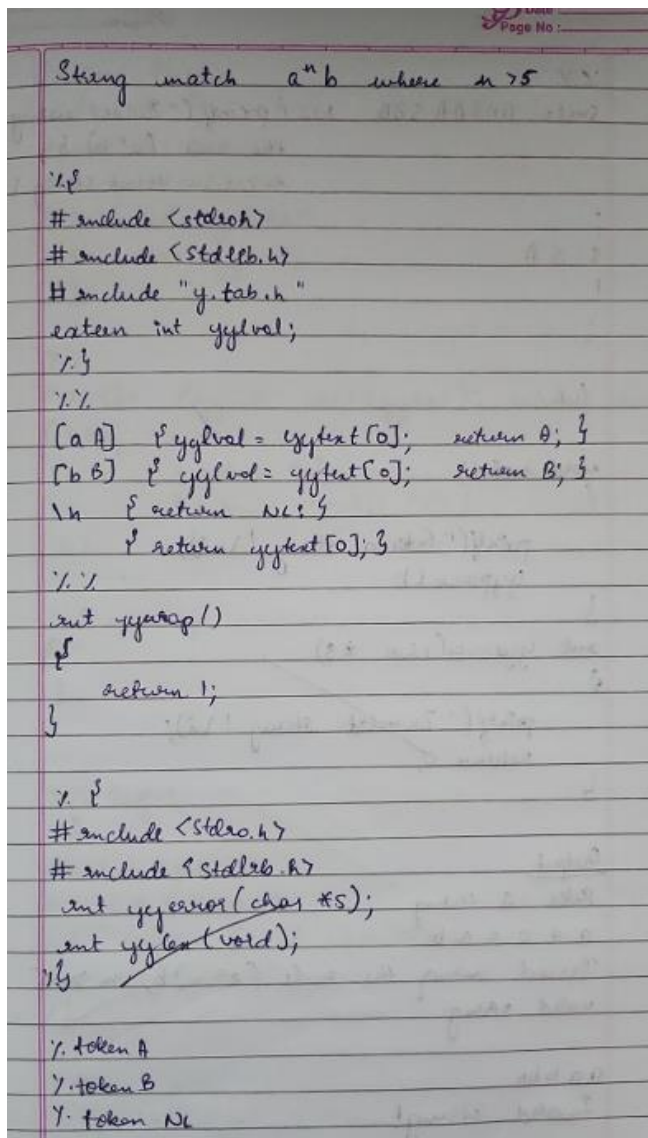 Date:
Page No:
String match a^n b where n >5
%{
# include <stdio.h>
# include <Stdlib.h>
# include "y.tab.h"
extern int yylval;
%}
%%
[a A] { yylval = yytext[0]; return A; }
[b B] { yylval = yytext[0]; return B; }
\n { return NL; }
{ return yytext[0]; }
%%
int yywrap()
{
return 1;
}
% {
# include <Stdio.h>
# include <Stdlib.h>
int yyerror(char *s);
int yylex(void);
%}
%token A
%token B
%token NL